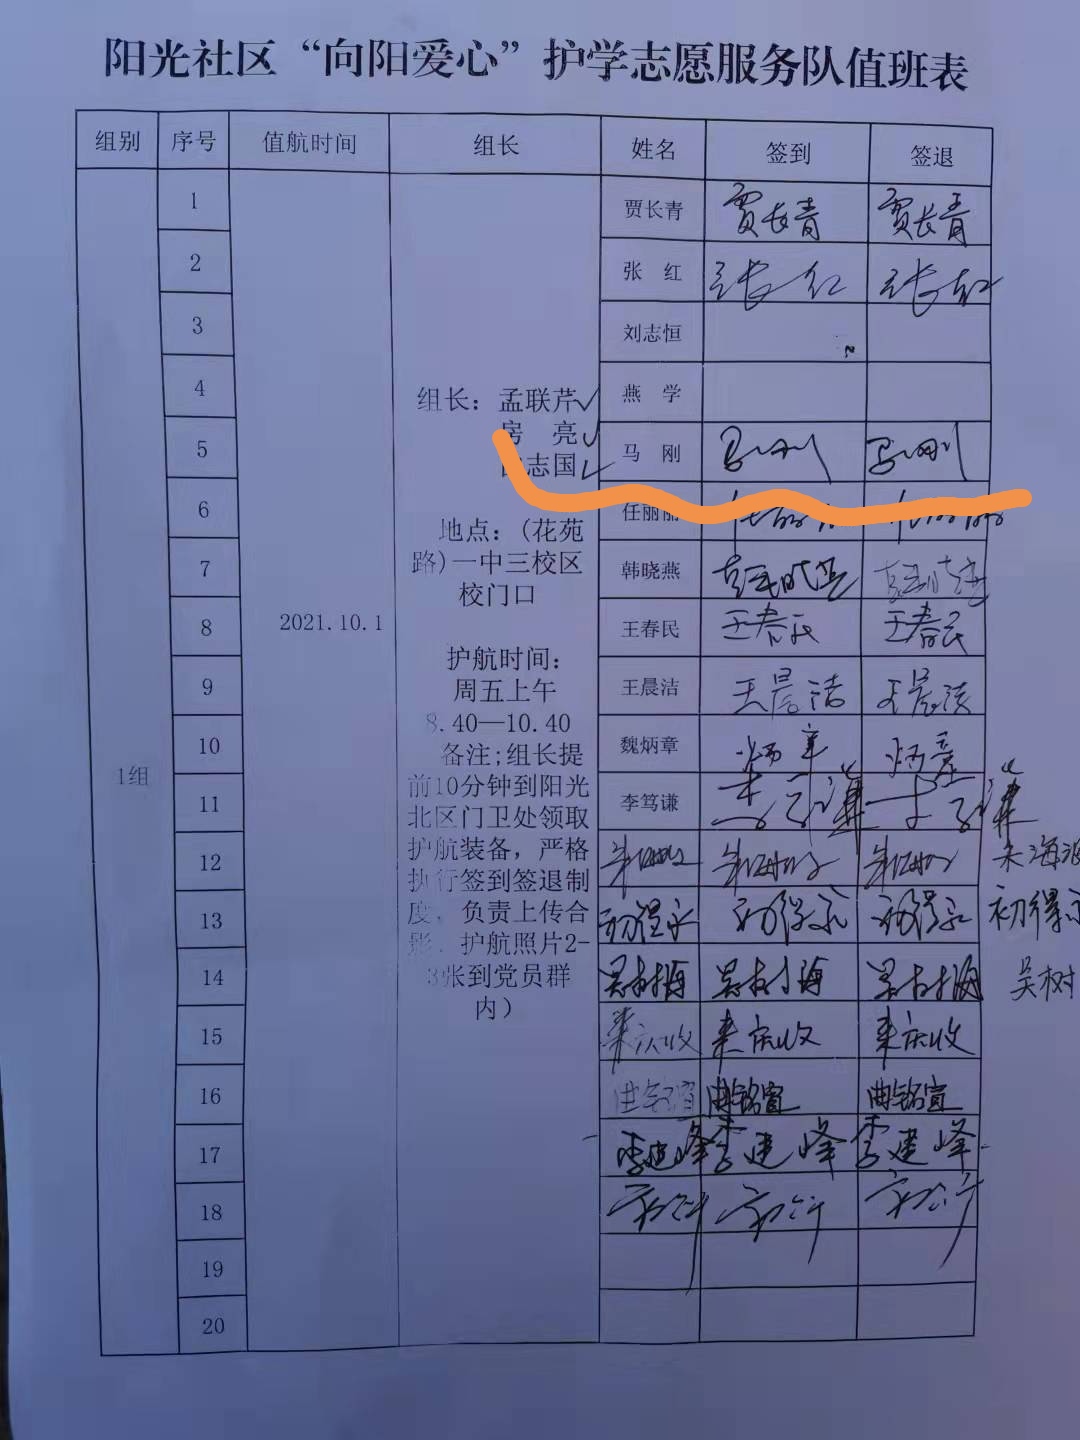 阳光社区“向阳爱心”护学志愿服务队值班表
组别 序号 值航时间 组长 姓名 签到 签退
1组
2021.10.1
组长：孟联芹✓
房 亮✓
志国✓
地点：(花苑
路)一中三校区
校门口
护航时间：
周五上午
8.40—10.40
备注;组长提
前10分钟到阳光
北区门卫处领取
护航装备，严格
执行签到签退制
度，负责上传合
影、护航照片2-
3张到党员群
内）
1 贾长青 贾长青 贾长青
2 张 红 张红 张红
3 刘志恒
4 燕 学
5 马 刚 马刚 马刚
6 任丽丽 任丽丽 任丽丽
7 韩晓燕 韩晓燕 韩晓燕
8 王春民 王春民 王春民
9 王晨洁 王晨洁 王晨洁
10 魏炳章 炳章 炳章
11 李笃谦 李笃谦 李笃谦
12 朱海波 朱海波 朱海波 朱海波
13 初得永 初得永 初得永 初得永
14 吴树海 吴树海 吴树海 吴树
15 来庆收 来庆收 来庆收
16 曲铭宣 曲铭宣 曲铭宣
17 李建峰 李建峰 李建峰
18
19
20